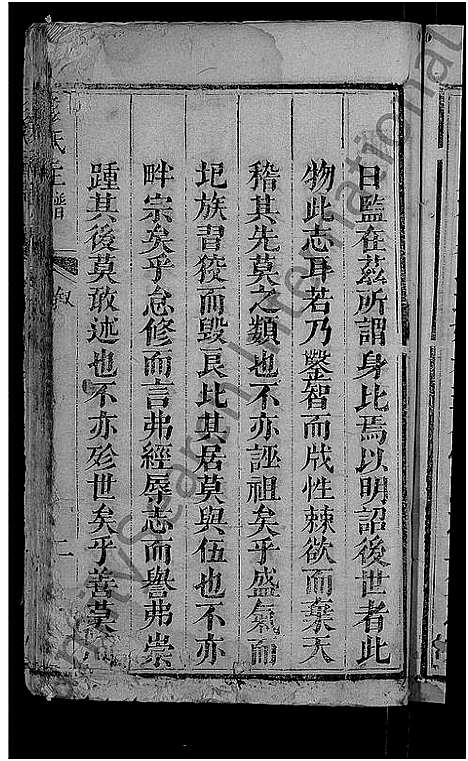 日監在茲所謂身比焉以明詔後世者此
物此志耳若乃鑿智而戕性棘欲而棄天
稽其先莫之類也不亦誣祖矣乎盛氣而
圮族習狡而毀良比其居莫與伍也不亦
畔宗矣乎怠修而言弗經辱志而譽弗崇
踵其後莫敢述也不亦殄世矣乎善莫
氏主譜 叙 二